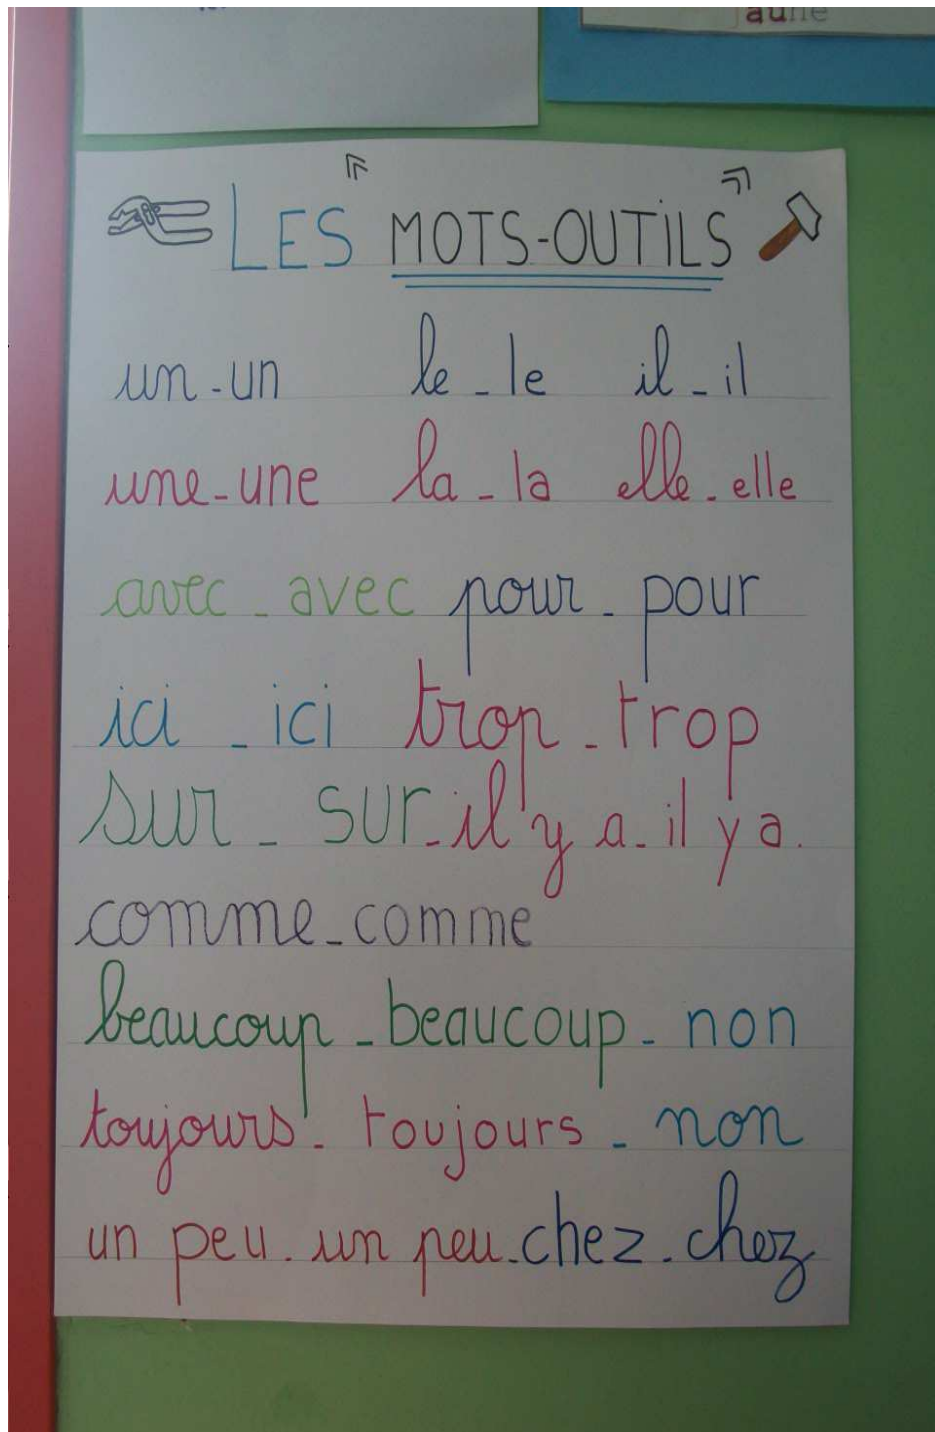 jaune
« LES MOTS-OUTiLS »
un - un le - le il - il
une - une la - la elle - elle
avec - avec pour - pour
ici - ici trop - trop
sur - sur - il y a - il y a.
comme - comme
beaucoup - beaucoup - non
toujours - toujours - non
un peu - un peu - chez - chez